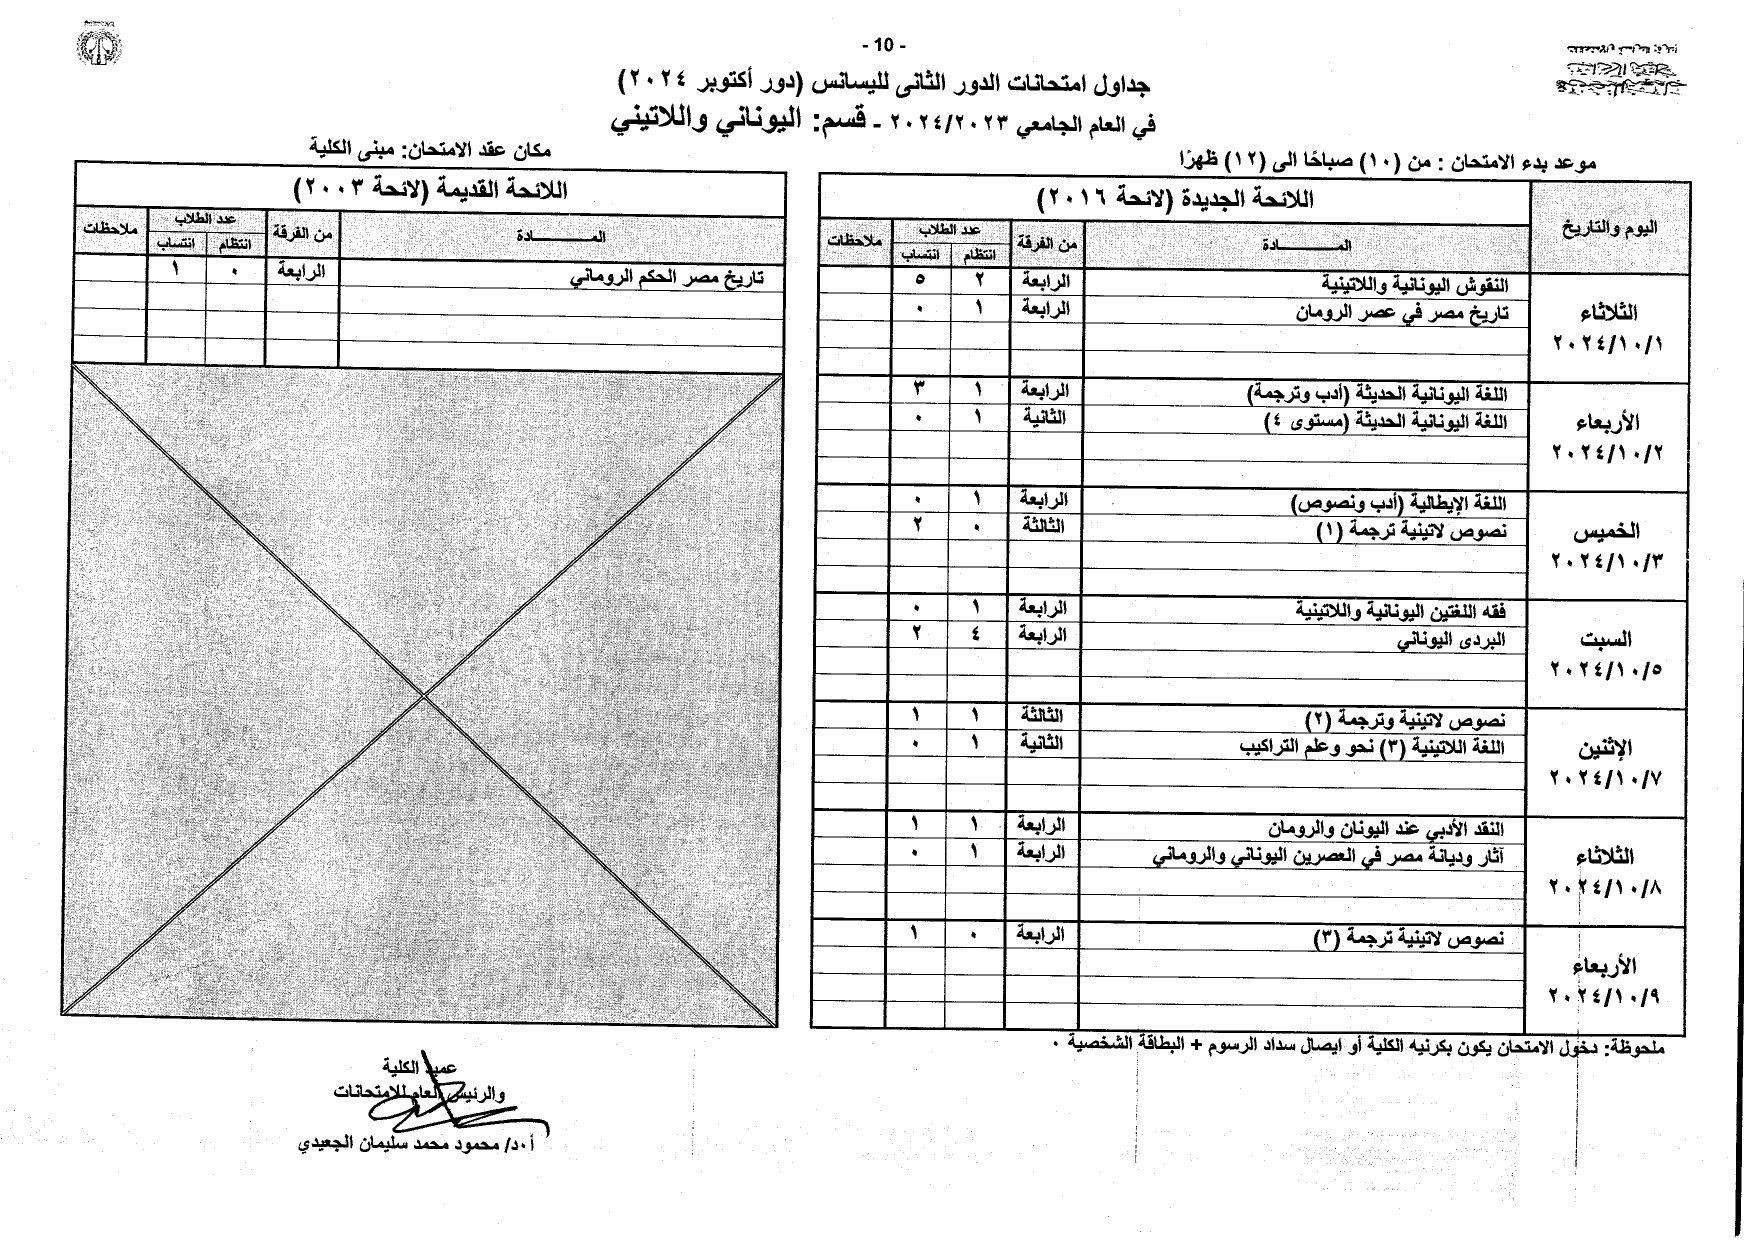 - 10 -
جداول امتحانات الدور الثانى لليسانس (دور أكتوبر ٢٠٢٤)
في العام الجامعي ٢٠٢٤/٢٠٢٣ ـ قسم: اليوناني واللاتيني
موعد بدء الامتحان : من (١٠) صباحًا الى (١٢) ظهرًا
مكان عقد الامتحان: مبنى الكلية
اليوم والتاريخ
اللائحة الجديدة (لائحة ٢٠١٦)
المـــــــــادة من الفرقة عدد الطلاب ملاحظات
انتظام انتساب
الثلاثاء
٢٠٢٤/١٠/١
النقوش اليونانية واللاتينية الرابعة ٢ ٥
تاريخ مصر في عصر الرومان الرابعة ١ ٠
الأربعاء
٢٠٢٤/١٠/٢
اللغة اليونانية الحديثة (أدب وترجمة) الرابعة ١ ٣
اللغة اليونانية الحديثة (مستوى ٤) الثانية ١ ٠
الخميس
٢٠٢٤/١٠/٣
اللغة الإيطالية (أدب ونصوص) الرابعة ١ ٠
نصوص لاتينية ترجمة (١) الثالثة ٠ ٢
السبت
٢٠٢٤/١٠/٥
فقه اللغتين اليونانية واللاتينية الرابعة ١ ٠
البردى اليوناني الرابعة ٤ ٢
الإثنين
٢٠٢٤/١٠/٧
نصوص لاتينية وترجمة (٢) الثالثة ١ ١
اللغة اللاتينية (٣) نحو وعلم التراكيب الثانية ١ ٠
الثلاثاء
٢٠٢٤/١٠/٨
النقد الأدبي عند اليونان والرومان الرابعة ١ ١
آثار وديانة مصر في العصرين اليوناني والروماني الرابعة ١ ٠
الأربعاء
٢٠٢٤/١٠/٩
نصوص لاتينية ترجمة (٣) الرابعة ٠ ١
اللائحة القديمة (لائحة ٢٠٠٣)
المـــــــــادة من الفرقة عدد الطلاب ملاحظات
انتظام انتساب
تاريخ مصر الحكم الروماني الرابعة ٠ ١
ملحوظة: دخول الامتحان يكون بكرنيه الكلية أو ايصال سداد الرسوم + البطاقة الشخصية ٠
عميد الكلية
والرئيس العام للامتحانات
أ٠د/ محمود محمد سليمان الجعيدي